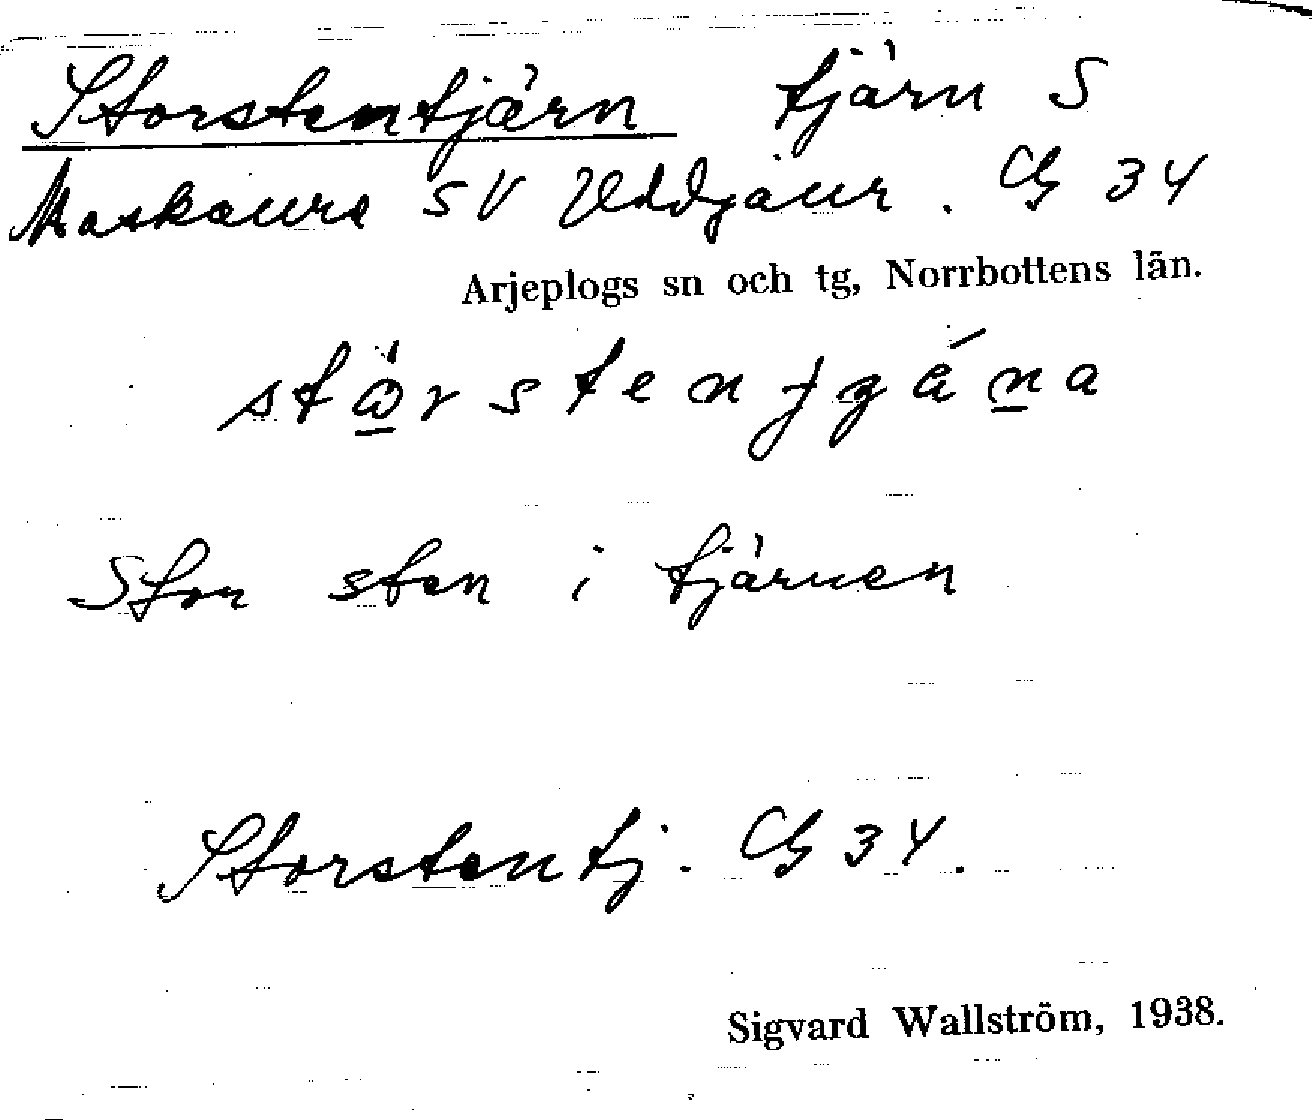 Storstentjärn tjärn S
Maskaure SV Uddjaur. G 34
Arjeplogs sn och tg, Norrbottens län.
Stor sten i tjärnen
Storstentj. G 34.
Sigvard Wallström, 1938.